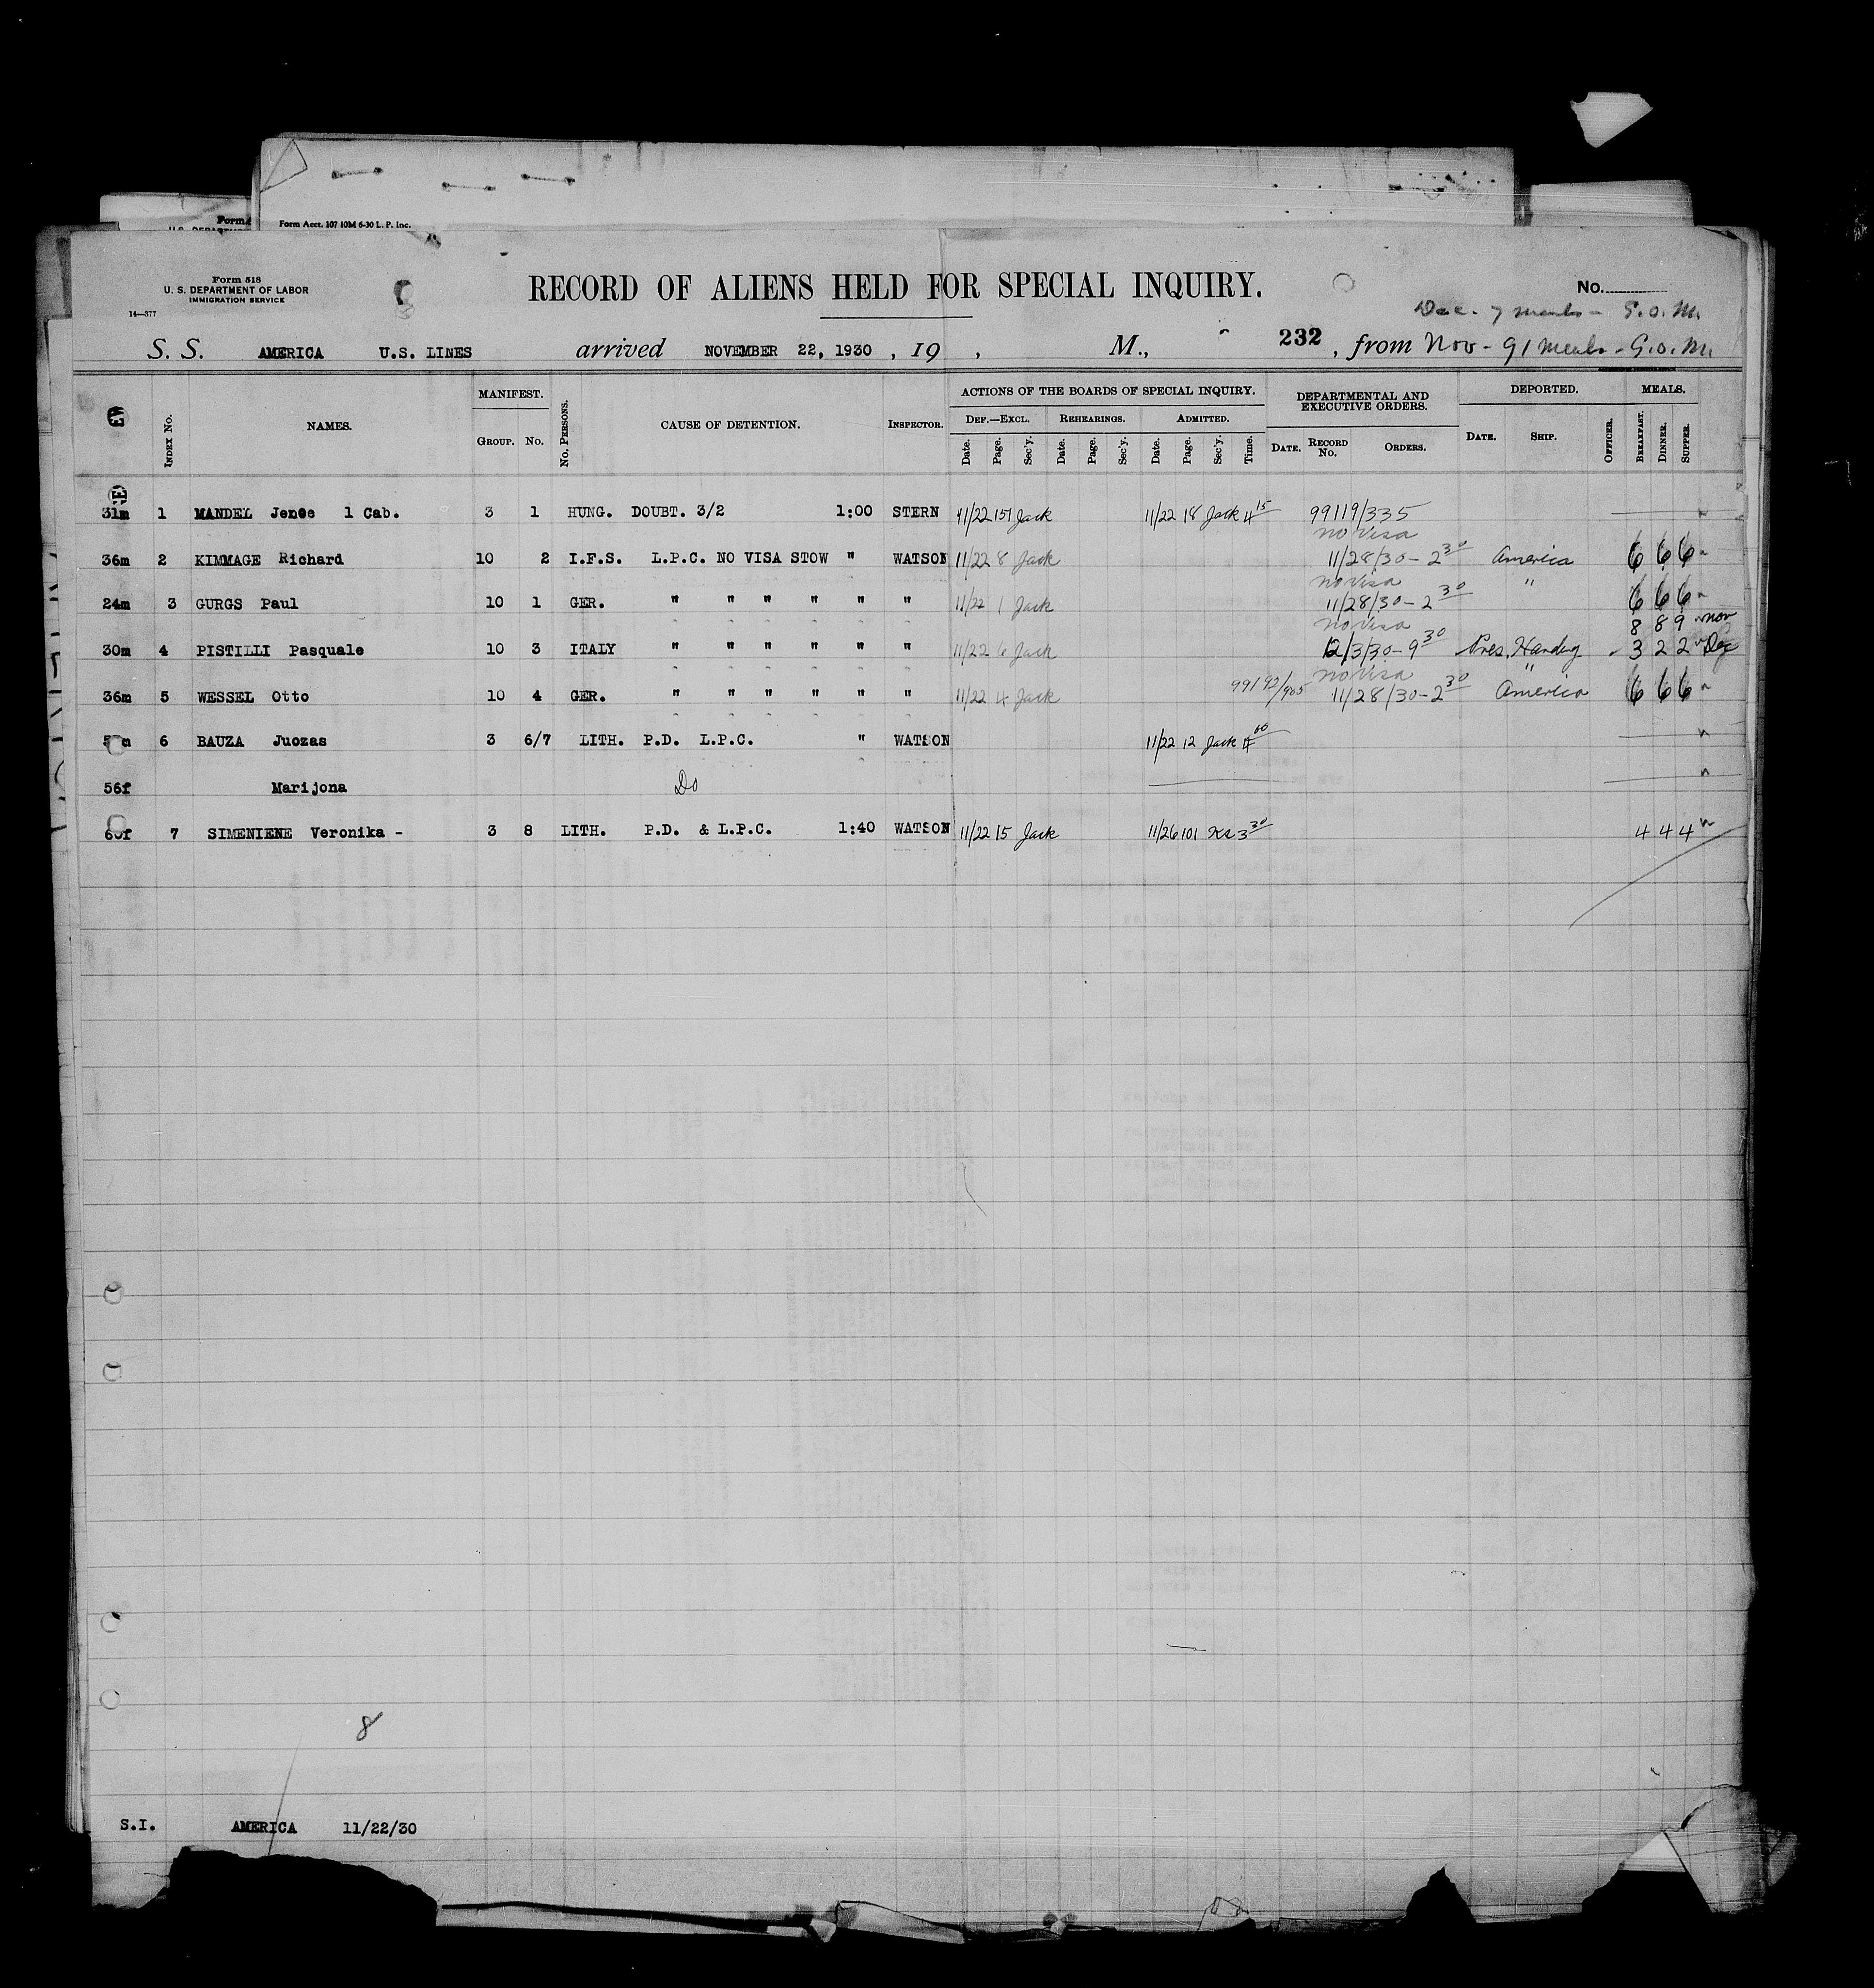 Form Acct. 107 10M 6-30 L. P. Inc.
Form 518
U. S. DEPARTMENT OF LABOR
IMMIGRATION SERVICE
14—377
RECORD OF ALIENS HELD FOR SPECIAL INQUIRY.
No.
Dec. 7 meals - G.O.M.
S. S. AMERICA U.S. LINES arrived NOVEMBER 22, 1930 , 19 , M., 232 , from Nov - 91 meals - G.O.M.
INDEX No. NAMES. MANIFEST. GROUP. No. No. PERSONS. CAUSE OF DETENTION. INSPECTOR. ACTIONS OF THE BOARDS OF SPECIAL INQUIRY. DEF.—EXCL. Date. Page. Sec'y. REHEARINGS. Date. Page. Sec'y. ADMITTED. Date. Page. Sec'y. Time. DEPARTMENTAL AND EXECUTIVE ORDERS. DATE. RECORD No. ORDERS. DEPORTED. DATE. SHIP. OFFICER. MEALS. BREAKFAST. DINNER. SUPPER.
31m 1 MANDEL Jenoe 1 Cab. 3 1 HUNG. DOUBT. 3/2 1:00 STERN 11/22 151 Jack 11/22 18 Jack 4 15 99119/335
no visa
36m 2 KIMMAGE Richard 10 2 I.F.S. L.P.C. NO VISA STOW " WATSON 11/22 8 Jack 11/28/30 - 2 30 America 6 6 6
no visa
24m 3 GURGS Paul 10 1 GER. " " " " " " 11/22 1 Jack 11/28/30 - 2 30 " 6 6 6
no visa 8 8 9 Nov
30m 4 PISTILLI Pasquale 10 3 ITALY " " " " " " 11/22 6 Jack 12/3/30 - 9 30 Pres. Harding 3 2 2 Dec
no visa
36m 5 WESSEL Otto 10 4 GER. " " " " " " 11/22 4 Jack 99192/905 11/28/30 - 2 30 America 6 6 6
6 BAUZA Juozas 3 6/7 LITH. P.D. L.P.C. " WATSON 11/22 12 Jack 4 00
56f Marijona Do
60f 7 SIMENIENE Veronika - 3 8 LITH. P.D. & L.P.C. 1:40 WATSON 11/22 15 Jack 11/26 101 3 30 4 4 4
8
S.I. AMERICA 11/22/30